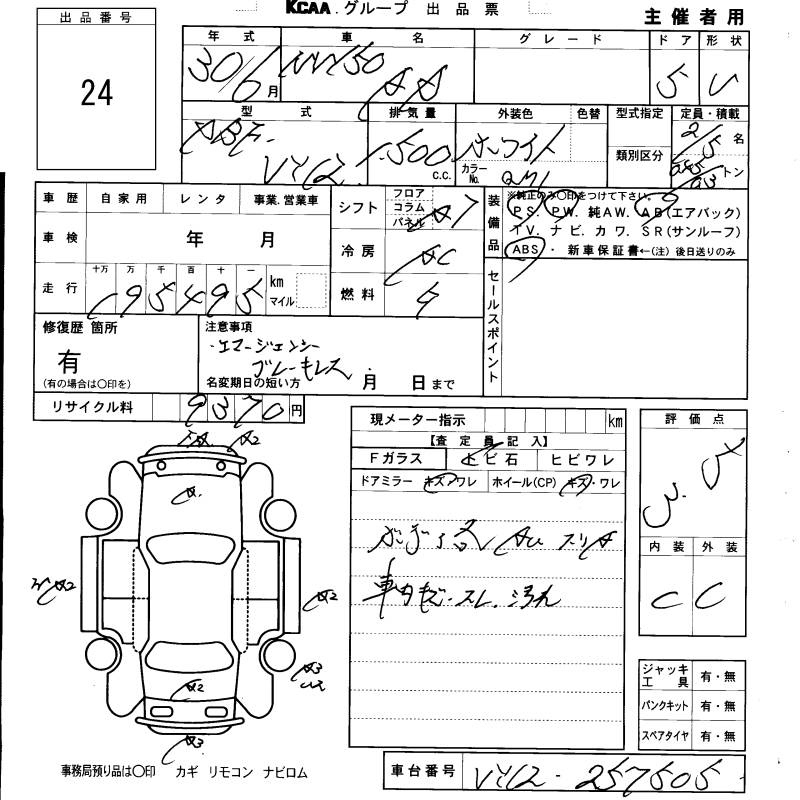 KCAA.グループ 出品票
主催者用
出品番号
24
年式 車名 グレード ドア 形状
30/6月 NV150 AD 5 V
型式 排気量 外装色 色替 型式指定 定員・積載
DBF- VY12 1,500 c.c. ホワイト カラーNo. QM1 類別区分 2/5名 トン
車歴 自家用 レンタ 事業.営業車
車検 年 月
十万 万 千 百 十 一
走行 195495 km マイル
シフト フロア コラム パネル AT
冷房 AC
燃料
装備品
※純正のみ○印をつけて下さい。
PS. PW. 純AW. AB(エアバック)
TV. ナビ. カワ. SR(サンルーフ)
ABS ・ 新車保証書←(注) 後日送りのみ
セールスポイント
修復歴 箇所
有
(有の場合は○印を)
注意事項
・エマージェンシー
ブレーキレス
名変期日の短い方 月 日まで
リサイクル料 9370円
現メーター指示 km
【査定員記入】
Fガラス トビ石 ヒビワレ
ドアミラー キズ・ワレ ホイール(CP) キズ・ワレ
車内キズ・スレ.汚れ
評価点
内装 外装
C C
ジャッキ工具 有・無
パンクキット 有・無
スペアタイヤ 有・無
A2
A2
A2
A2
A3
A3
事務局預り品は○印 カギ リモコン ナビロム
車台番号 VY12-257505